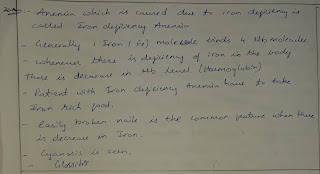 - Anemia which is caused due to iron deficiency is
called Iron deficiency Anemia
- Generally 1 Iron (Fe) molecule binds 4 Hb molecules
- Whenever there is deficiency of iron in the body
There is decrease in Hb level (Haemoglobin)
- Patient with Iron deficiency Anemia have to take
Iron rich food.
- Easily broken nails is the common feature when there
is decrease in Iron.
- Cyanosis is seen.
- Glossitis